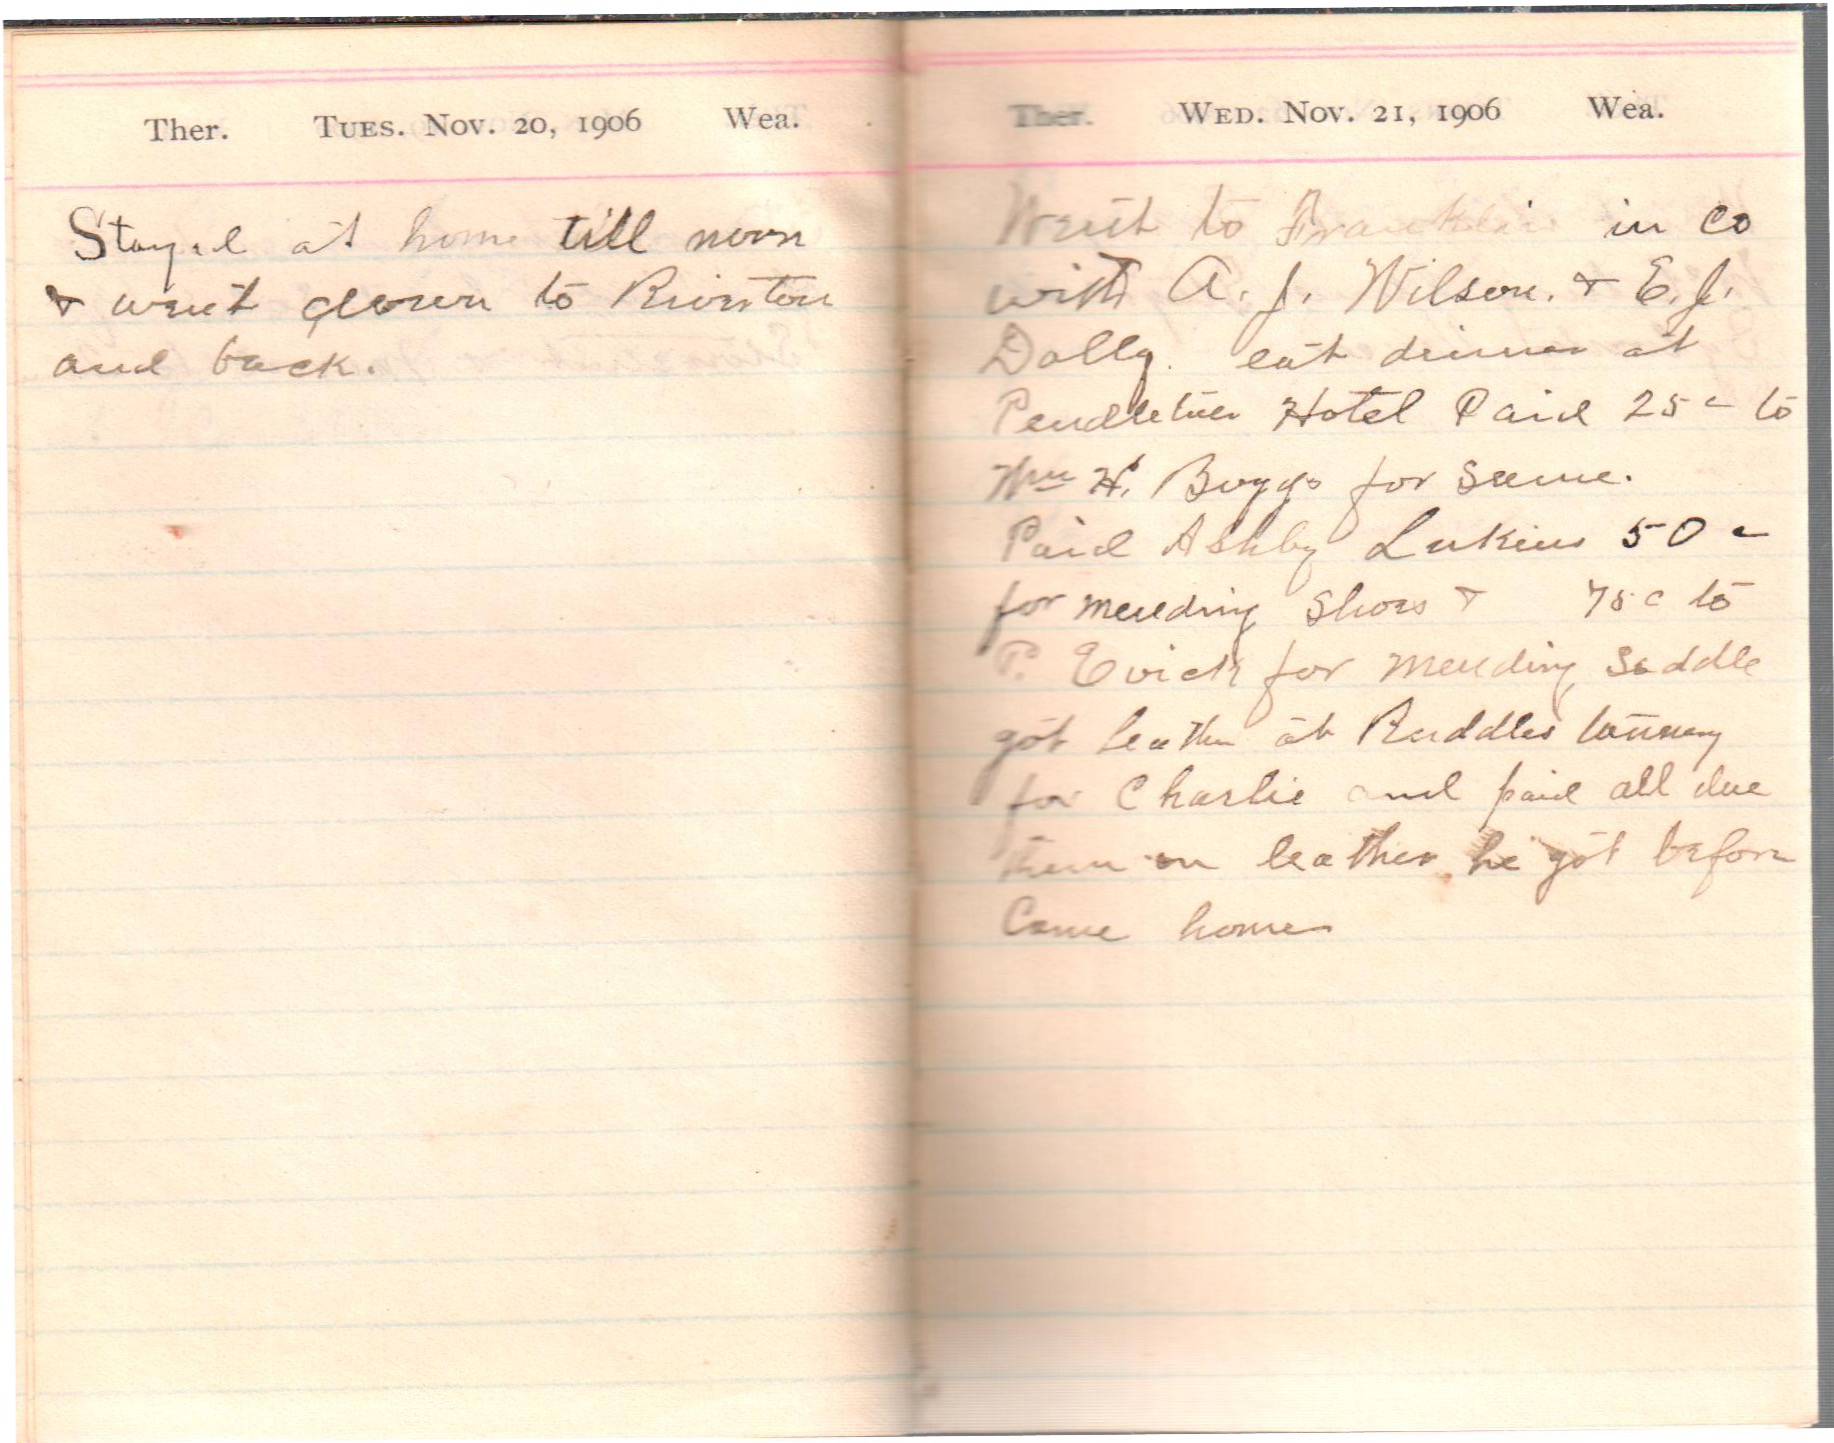 Ther. TUES. NOV. 20, 1906 Wea.
Stayed at home till noon
& went down to Riverton
and back.
Ther. WED. NOV. 21, 1906 Wea.
Went to Franklin in co
with A. J. Wilson. & E. J.
Dolly. eat dinner at
Pendleton Hotel Paid 25 c to
Wm H. Boggs for same.
Paid Ashby Lukins 50 c
for mending Shoes & 75 c to
P. Evick for mending Saddle
got leather at Ruddles tannery
for Charlie and paid all due
them on leather he got before
Came home